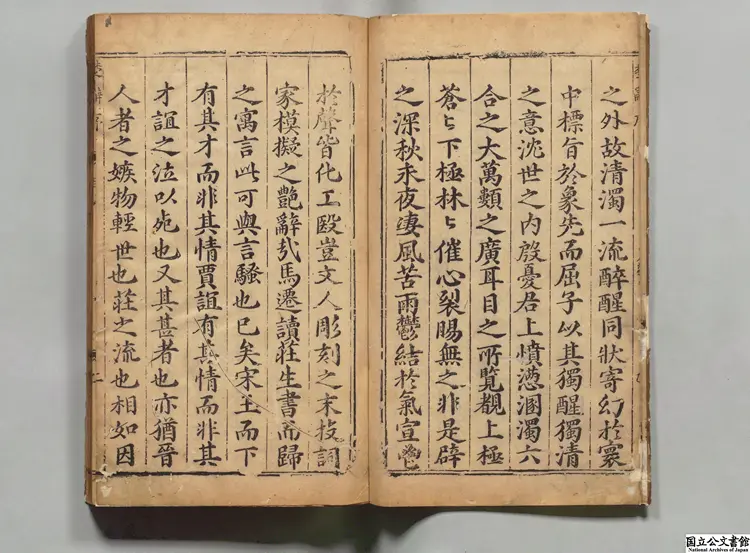 之外故清濁一流醉醒同狀寄幻於寰
中標旨於象先而屈子以其獨醒獨清
之意沈世之內殷憂君上憤懣溷濁六
合之大萬類之廣耳目之所覽覩上極
蒼々下極林々催心裂賜無之非是辟
之深秋永夜淒風苦雨鬱結於氣宣鬯
於聲皆化工殹豈文人彫刻之末技詞
家模擬之艷辭哉馬遷讀莊生書而歸
之寓言此可與言騷也已矣宋玉而下
有其才而非其情賈誼有其情而非其
才誼之泣以死也又其甚者也亦猶晉
人者之嫉物輕世也莊之流也相如因
楚辭序
二
国立公文書館
National Archives of Japan